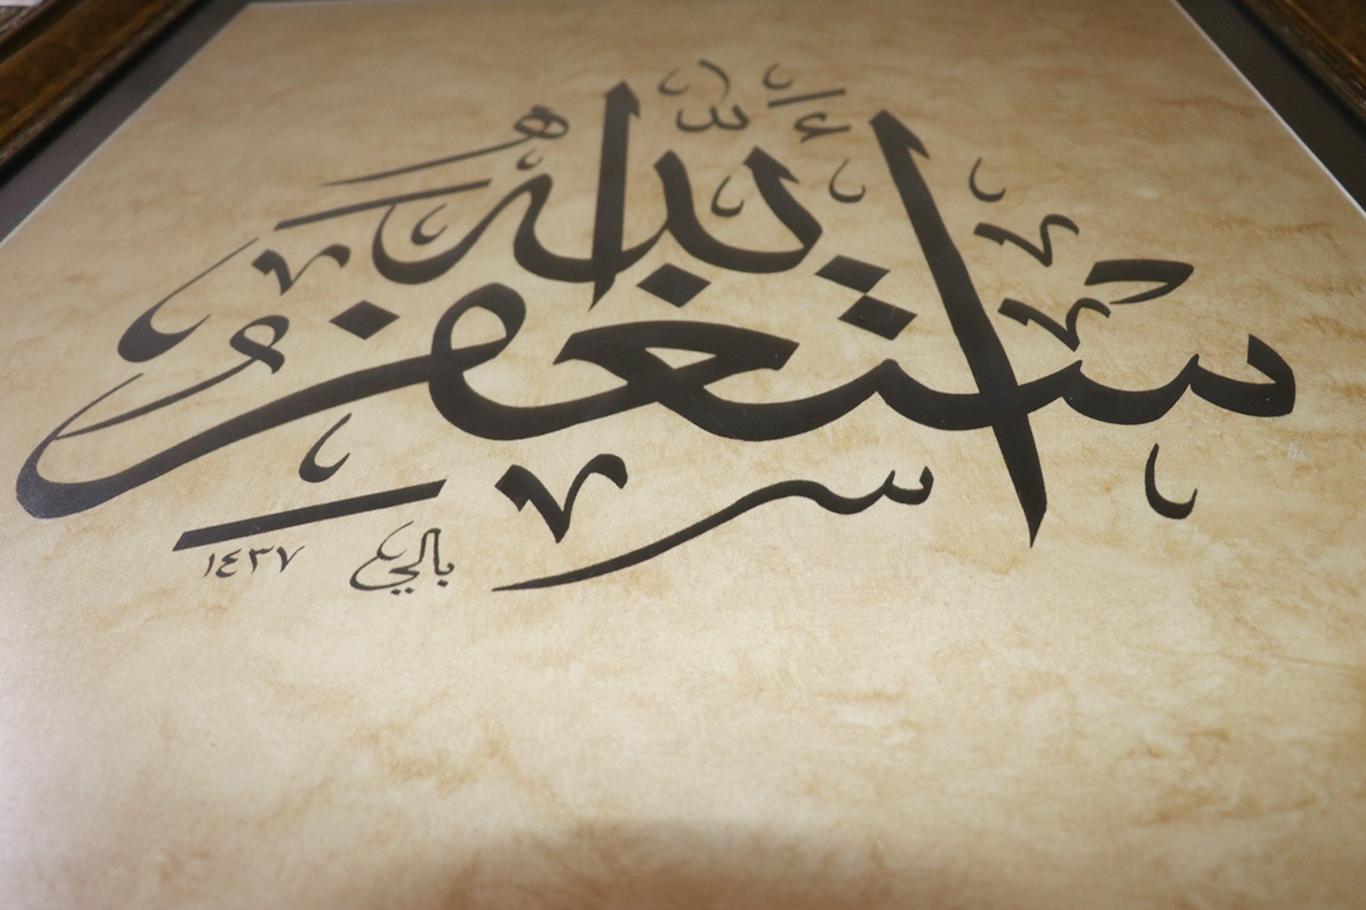 أستغفر الله
بالي ١٤٣٧